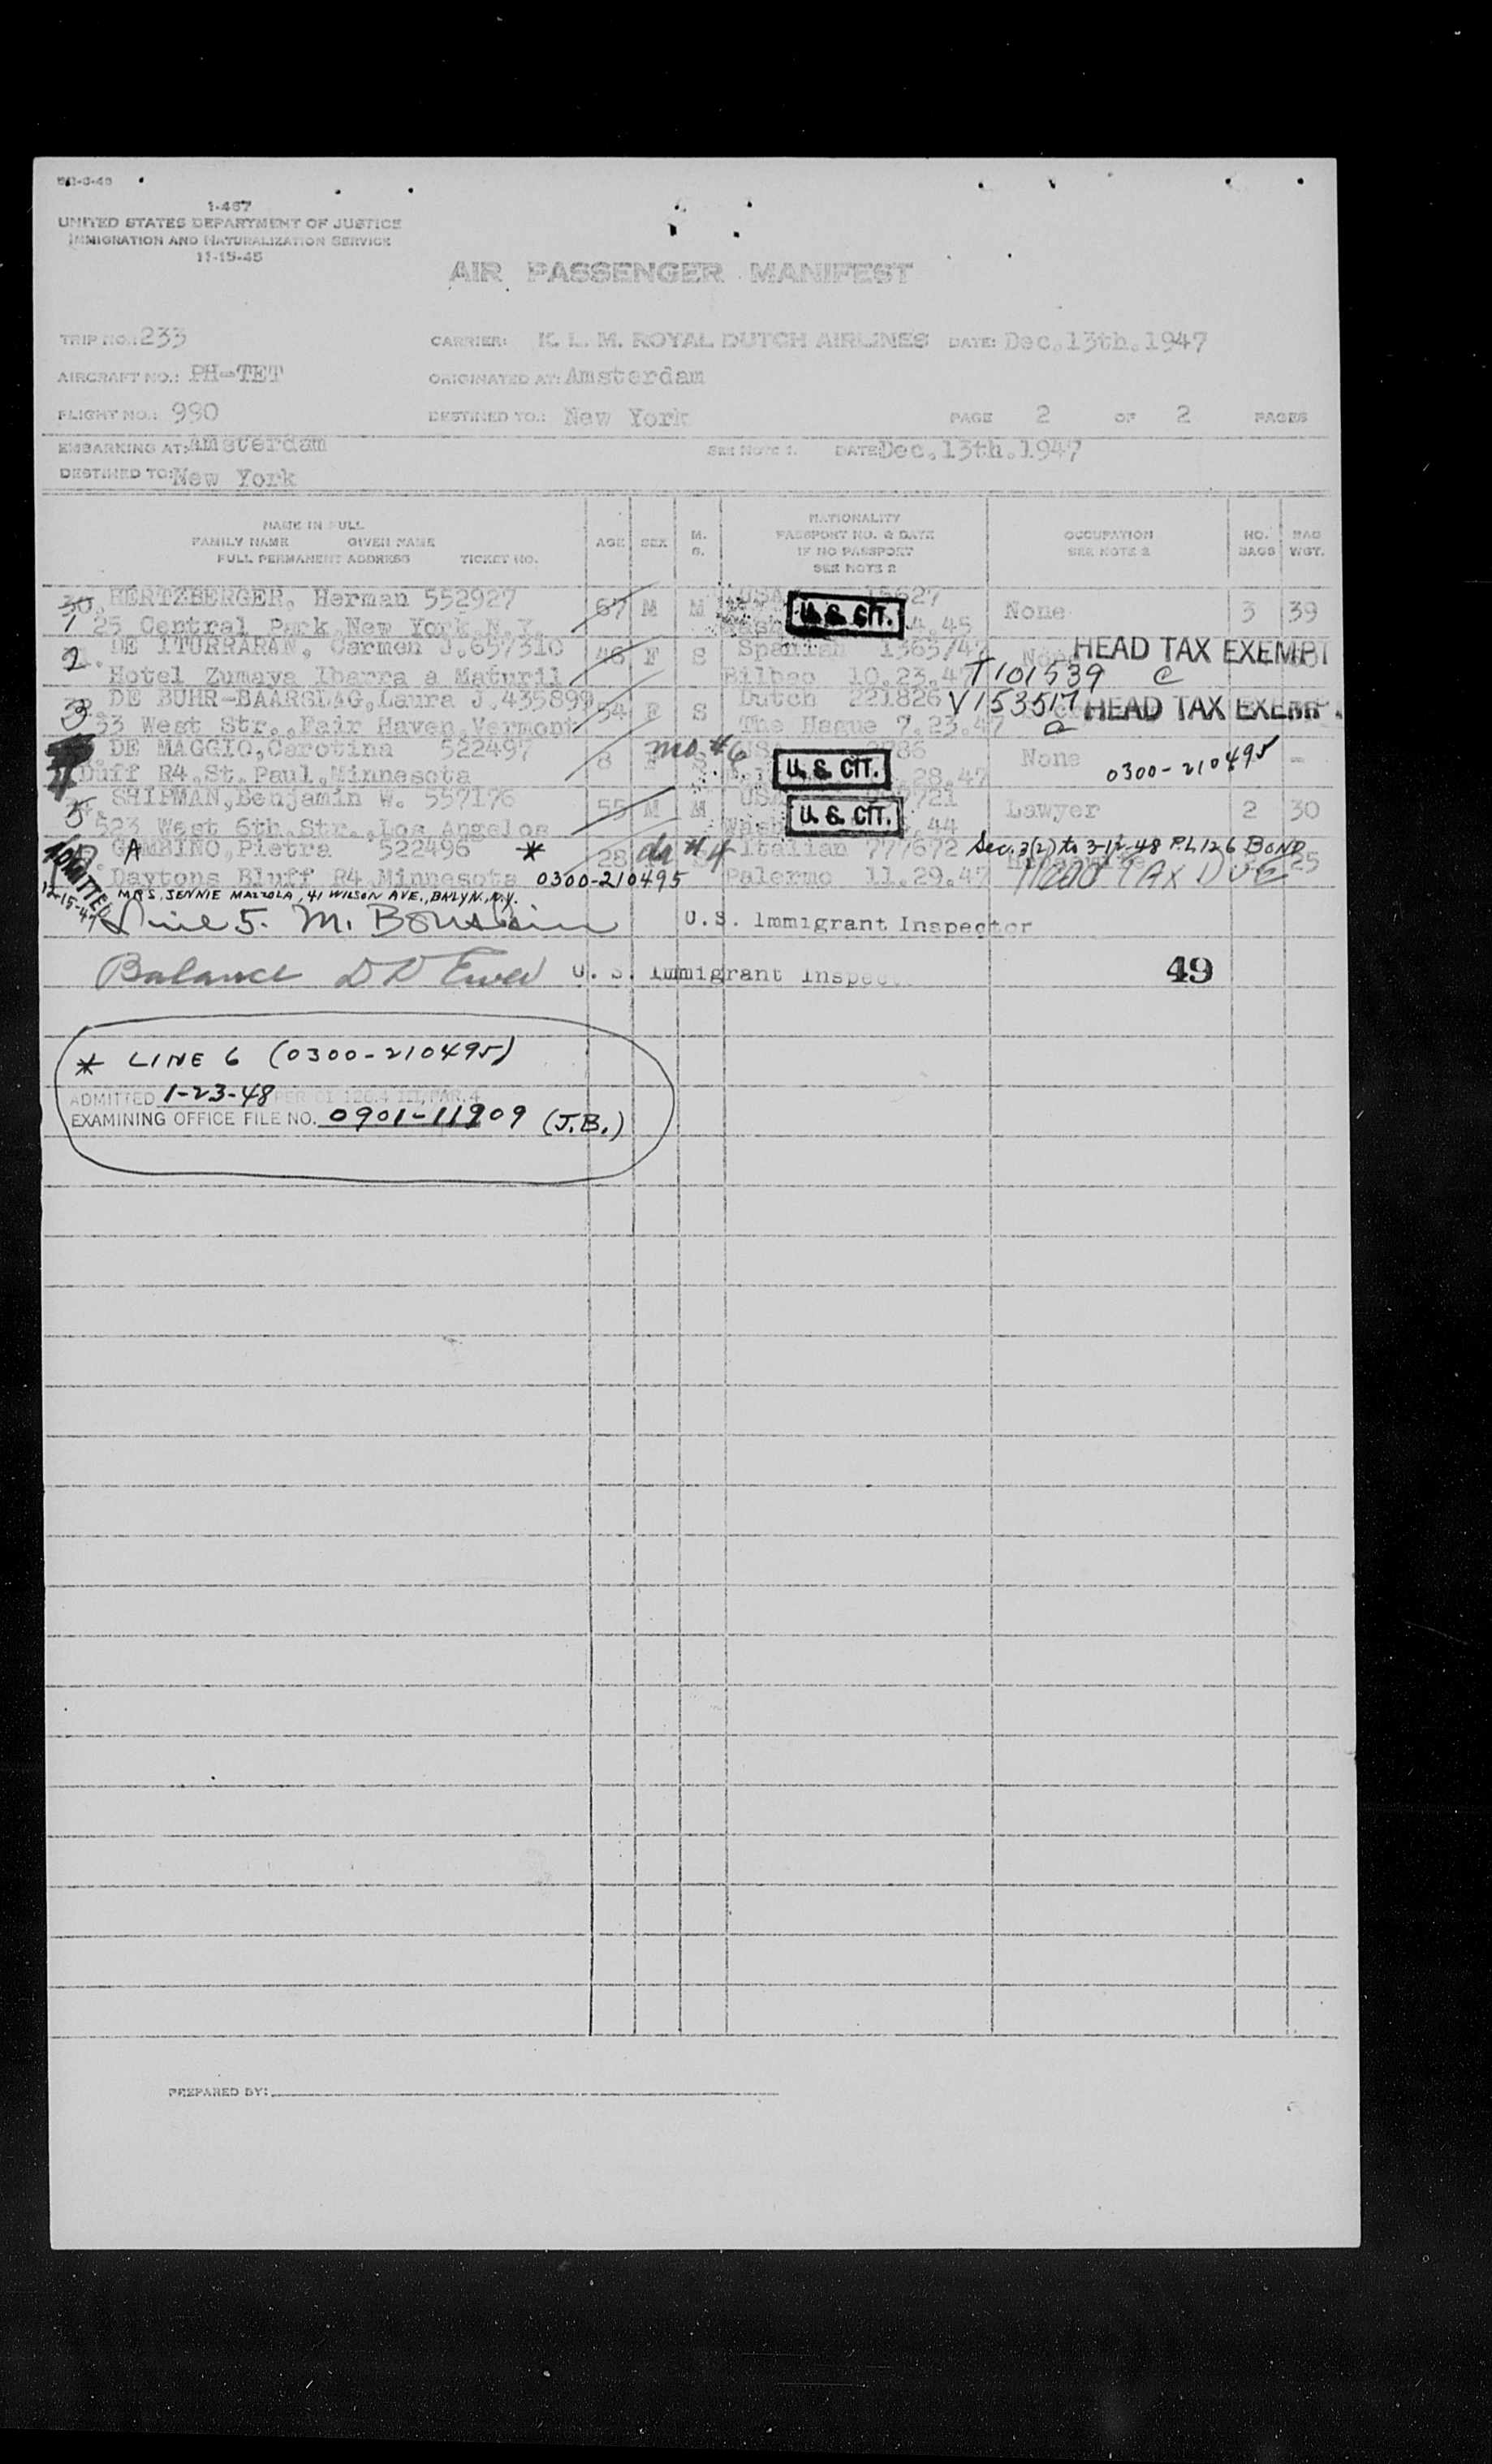 1-467
UNITED STATES DEPARTMENT OF JUSTICE
IMMIGRATION AND NATURALIZATION SERVICE
11-15-45
AIR PASSENGER MANIFEST
TRIP NO.: 233 CARRIER: K. L. M. ROYAL DUTCH AIRLINES DATE: Dec.13th.1947
AIRCRAFT NO.: PH-TET ORIGINATED AT: Amsterdam
FLIGHT NO.: 990 DESTINED TO.: New York PAGE 2 OF 2 PAGES
EMBARKING AT: Amsterdam SEE NOTE 1. DATE Dec.13th.1947
DESTINED TO: New York
NAME IN FULL
FAMILY NAME GIVEN NAME
FULL PERMANENT ADDRESS TICKET NO.
AGE SEX M. S.
NATIONALITY
PASSPORT NO. & DATE
IF NO PASSPORT
SEE NOTE 2
OCCUPATION
SEE NOTE 2
NO. BAGS
BAG WGT.
30. HERTZBERGER, Herman 552927 67 M M USA U. S. CIT. None 3 39
1 25 Central Park New York N.Y. 4.45
2 DE ITURRARAN, Carmen J. 657310 46 F S Spanish 1365/47 HEAD TAX EXEMPT
Hotel Zumaya Ibarra a Maturil Bilbao 10.23.47 T101539 C
3 DE BUHR-BAARSLAG, Laura J. 435899 54 F S Dutch 221826 V153517 HEAD TAX EXEMP
33 West Str., Fair Haven, Vermont The Hague 7.23.47
4 DE MAGGIO, Carotina 522497 8 F S mo #6 U. S. CIT. None 0300-210495 -
Duff R4, St. Paul, Minnesota 28.47
5 SHIPMAN, Benjamin W. 557176 55 M M USA U. S. CIT. Lawyer 2 30
523 West 6th. Str., Los Angelos 44
A GAMBINO, Pietra 522496 * 28 da #4 Italian 777672 Sec. 3(2) to 3-12-48 P.L 126 BOND
Daytons Bluff R4 Minnesota 0300-210495 Palermo 11.29.47 Head Tax Due 25
ADMITTED 12-15-47
MRS. JENNIE MAZZOLA, 41 WILSON AVE., BKLYN., N.Y.
Line 5. M. U.S. Immigrant Inspector
Balance U. S. Immigrant Inspec
49
* LINE 6 (0300-210495)
ADMITTED 1-23-48
EXAMINING OFFICE FILE NO. 0901-11909 (J.B.)
PREPARED BY: